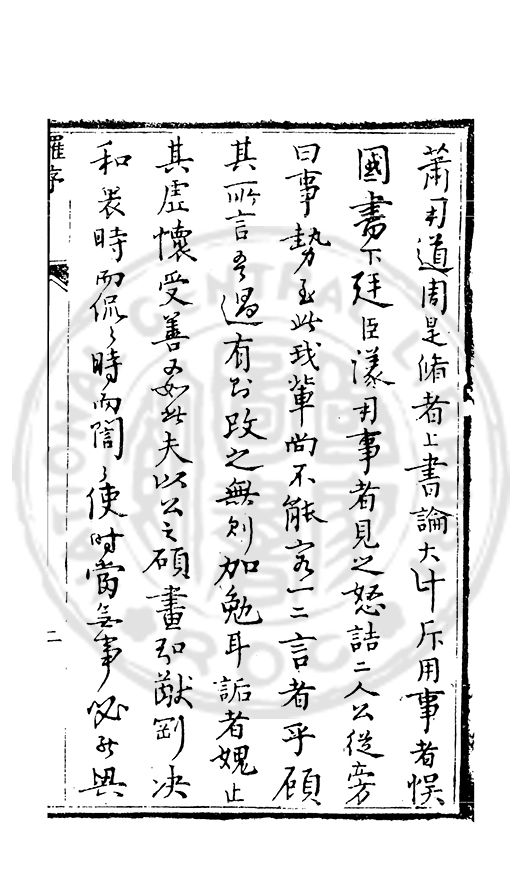 蕭用道周是脩者上書論大計斥用事者悞
國書下廷臣議用事者見之怒詰二人公從旁
曰事勢至此我輩尚不能容一二言者乎顧
其所言吾過有則改之無則加勉耳詬者媿止
其虛懷受善又如此夫以公之碩畫弘猷剛决
和衷時而侃〻時而誾〻使時當無事必能與
羅序
二